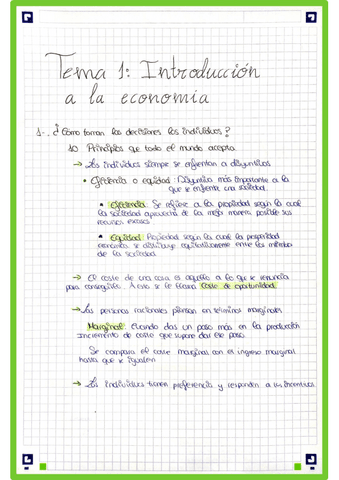 Tema 1: Introducción
a la economía
1-. ¿Cómo toman las decisiones los individuos?
10 Principios que todo el mundo acepta
→ Los individuos siempre se enfrentan a disyuntivas
• Eficiencia o equidad: Disyuntiva más importante a la
que se enfrenta una sociedad.
• Eficiencia: Se refiere a la propiedad según la cual
la sociedad aprovecha de la mejor manera posible sus
recursos escasos
• Equidad: Propiedad según la cual la prosperidad
económica se distribuye equitativamente entre los miembros
de la sociedad.
→ El coste de una cosa es aquello a lo que se renuncia
para conseguirlo. A esto se le llama Coste de oportunidad.
→ Las personas racionales piensan en términos marginales
Marginal: Cuando das un paso más en la producción
Incremento de coste que supone dar ese paso.
Se compara el coste marginal con el ingreso marginal
hasta que se igualen
→ Los individuos tienen preferencia y responden a los incentivos